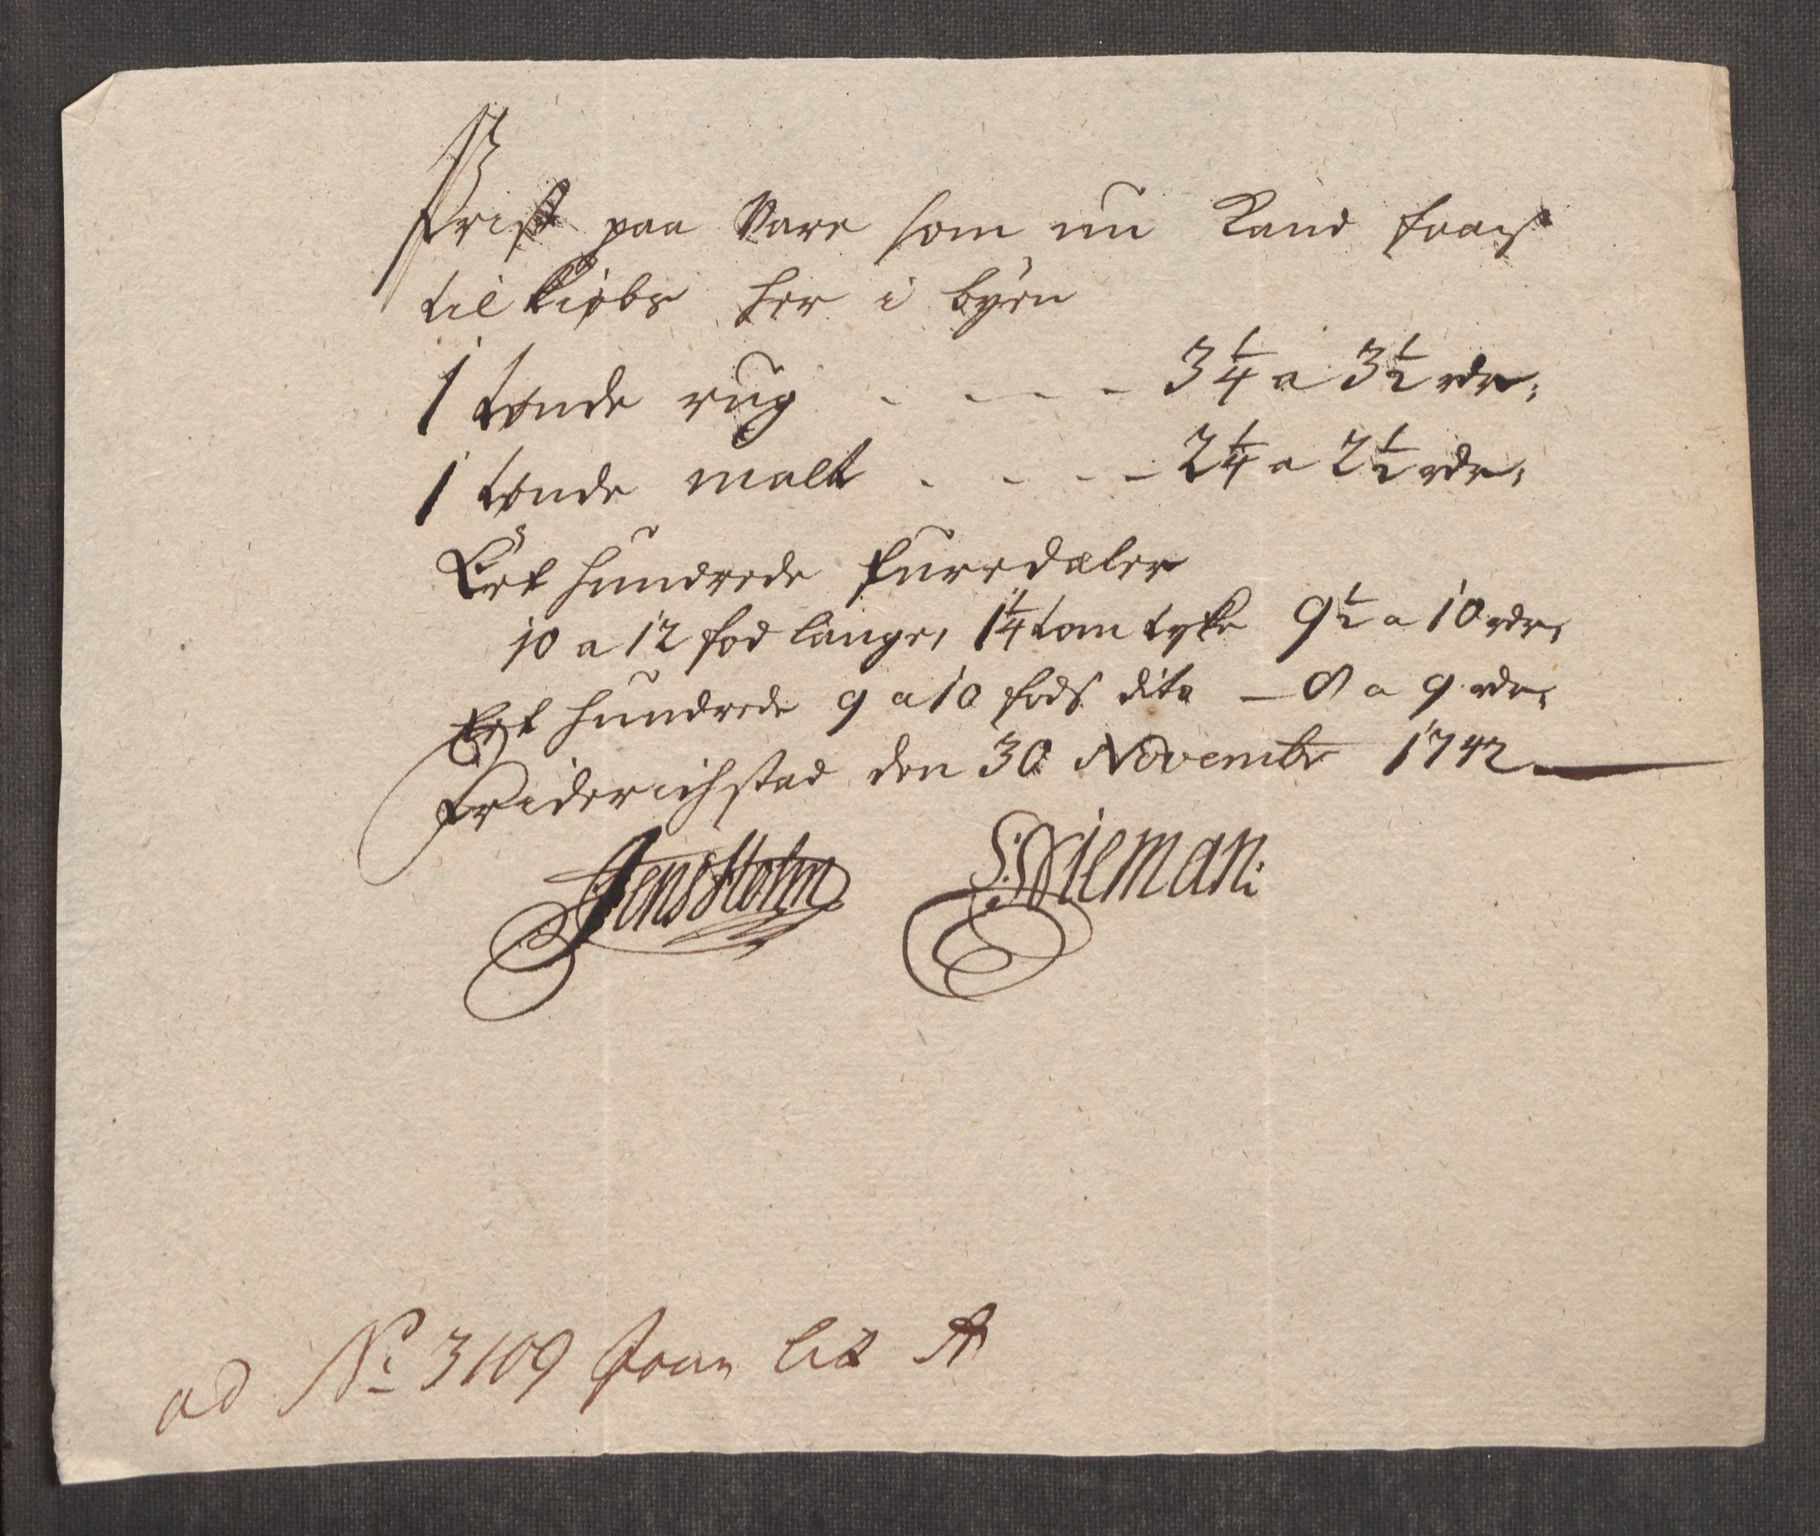 Prisß paa Vare som nu Kand faaes
til kiøbs her i byen
1 tønde rug - - - - 3 1/4 a 3 1/2 rdr,
1 tønde malt - - - - 2 1/4 a 2 1/2 rdr,
Eet hundrede furredæler
10 a 12 fod lange, 1 1/4 tom tyke 9 1/2 a 10 rdr,
Eet hundrede 9 a 10 fods dito - 8 a 9 rdr,
Friderichstad den 30 Novembr 1742
Jens Holm S: Nieman:
ad No 3109 Lit A